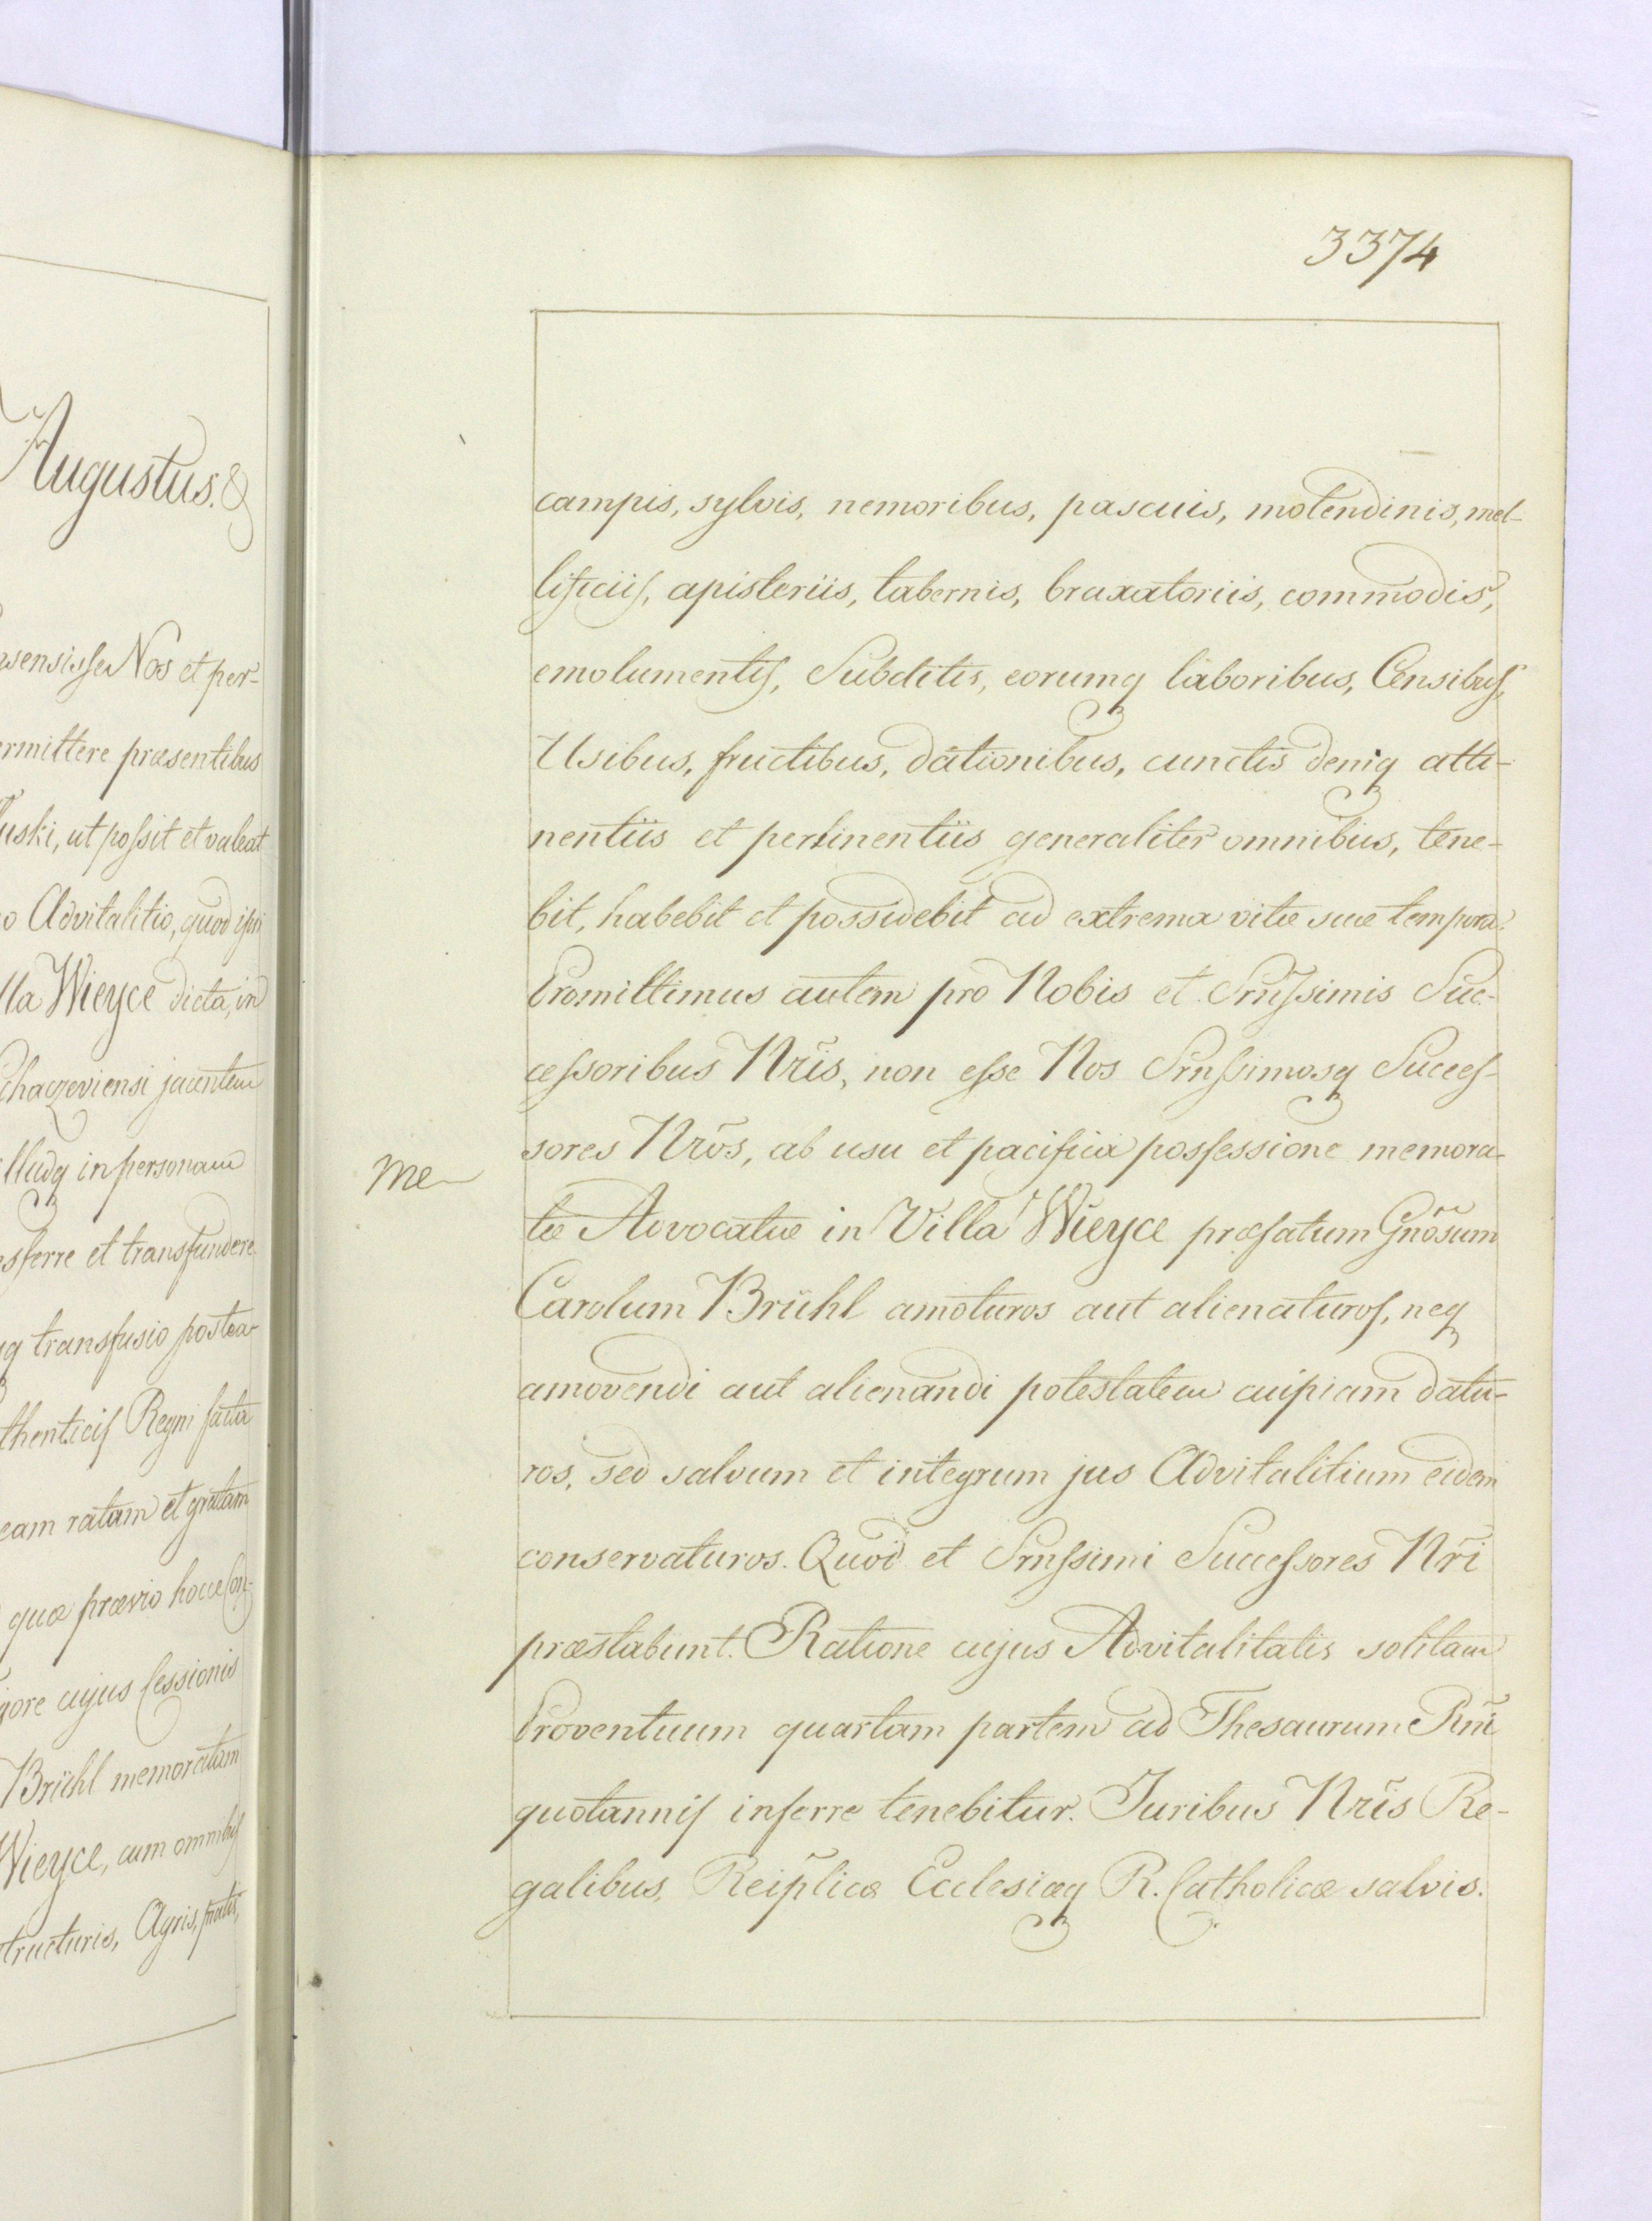 Augustus. &
nsensisse Nos et per-
ermittere præsentibus
uski, ut possit et valeat
o Advitalitio, quod ipsi
lla Wieyce dicta, in
chaczoviensi jacentem
illudq in personam
nsferre et transfundere
q transfusio postea
thenticis Regni facta
eam ratam et gratam
quæ prævio hocce Con-
gore cujus Cessionis
Brühl memoratam
Wieyce, cum omnibus
tructuris, Agris, pratis,
3374
campis, sylvis, nemoribus, pascuis, molendinis, mel-
lificiis, apisteriis, tabernis, braxatoriis, commodis,
emolumentis, Subditis, eorumq laboribus, Censibus,
Usibus, fructibus, dationibus, cunctis deniq atti-
nentiis et pertinentiis generaliter omnibus, tene-
bit, habebit et possidebit ad extrema vitæ suæ tempora.
Promittimus autem pro Nobis et Srnissimis Suc-
cessoribus Nris, non esse Nos Srnssimosq Succes-
sores Nros, ab usu et pacifica possessione memora-
me
tæ Advocatiæ in Villa Wieyce præfatum Gnosum
Carolum Brühl amoturos aut alienaturos, neq
amovendi aut alienandi potestatem cuipiam datu-
ros, sed salvum et integrum jus Advitalitium eidem
conservaturos. Quod et Srnssimi Successores Nri
præstabunt. Ratione cujus Advitalitatis solitam
Proventuum quartam partem ad Thesaurum Rni
quotannis inferre tenebitur. Juribus Nris Re-
galibus, Reiplicæ Ecclesiæq R. Catholicæ salvis.